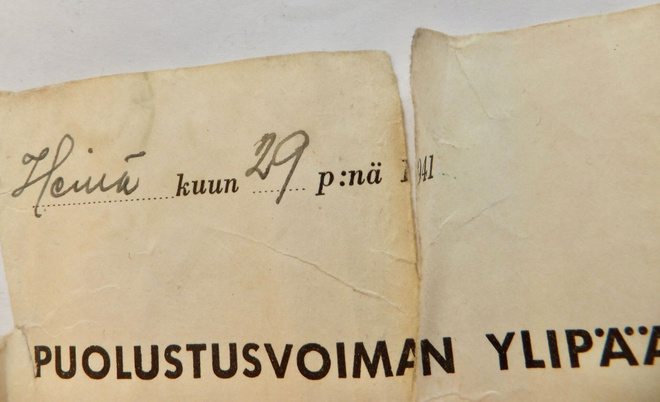 Heinä kuun 29 p:nä 1941
PUOLUSTUSVOIMAN YLIPÄÄ